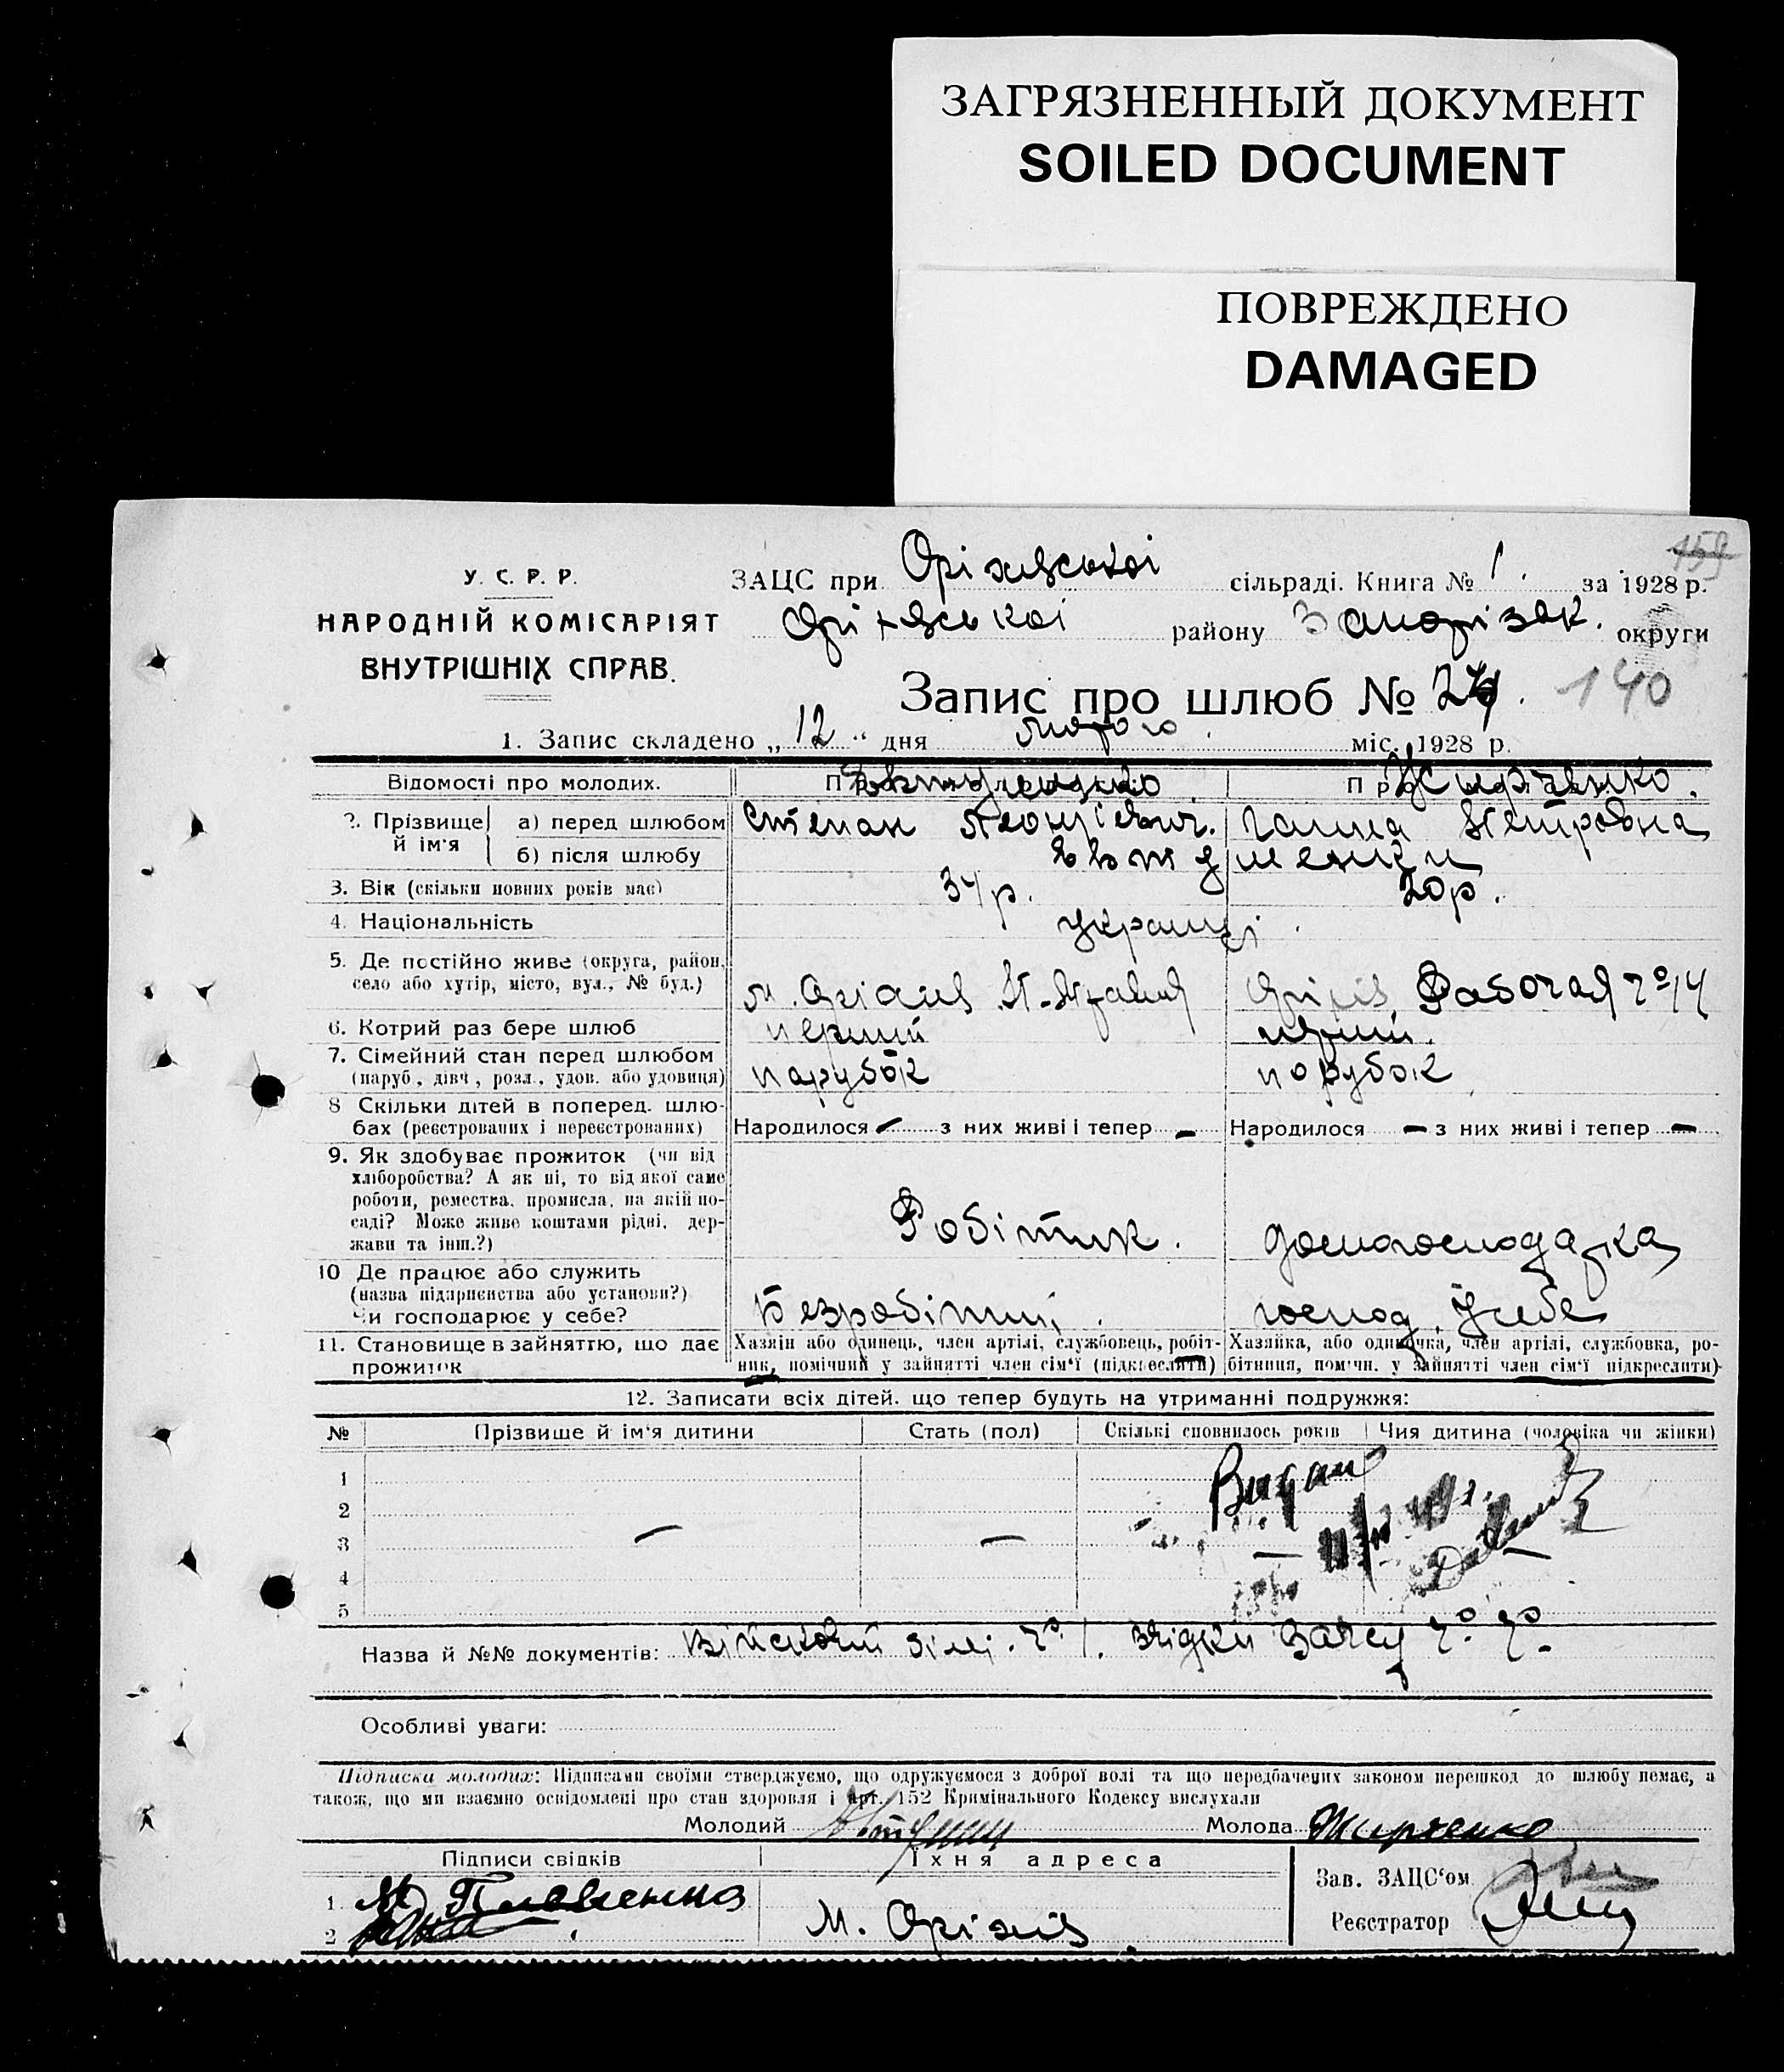 ЗАГРЯЗНЕННЫЙ ДОКУМЕНТ
SOILED DOCUMENT
ПОВРЕЖДЕНО
DAMAGED
159
У. С. Р. Р.
НАРОДНІЙ КОМІСАРІЯТ
ВНУТРІШНІХ СПРАВ.
ЗАЦС при Оріхівської сільраді. Книга № 1. за 1928 р.
Оріхівської району Запорізьк. округи
Запис про шлюб № 140
1. Запис складено „ 12 “ дня лютого міс. 1928 р.
Відомості про молодих.
2. Прізвище й ім'я
а) перед шлюбом Степан Леонтієвич. Ганна Петровна
б) після шлюбу
3. Вік (скільки повних років має) 34 р. 20 р.
4. Національність українці
5. Де постійно живе (округа, район, село або хутір, місто, вул., № буд.) м. Оріхів Оріхів Рабочая № 14
6. Котрий раз бере шлюб перший перший.
7. Сімейний стан перед шлюбом (паруб., дівч., розл., удов. або удовиця) парубок парубок
8 Скільки дітей в поперед. шлюбах (реєстрованих і нереєстрованих) Народилося — з них живі і тепер — Народилося — з них живі і тепер —
9. Як здобуває прожиток (чи від хліборобства? А як ні, то від якої саме роботи, ремества, промисла, на якій посаді? Може живе коштами рідні, держави та інш.?) Робітник. домогосподарка
10 Де працює або служить (назва підприємства або установи?) Чи господарює у себе? Безробітний. господ. у себе
11. Становище в зайняттю, що дає прожиток
Хазяін або одинець, член артілі, службовець, робітник, помічний у зайнятті член сім'ї (підкреслити)
Хазяйка, або одиначка, член артілі, службовка, робітниця, помічн. у зайнятті член сім'ї підкреслити)
12. Записати всіх дітей, що тепер будуть на утриманні подружжя:
№ Прізвище й ім'я дитини Стать (пол) Скількі сповнилось років Чия дитина (чоловіка чи жінки)
1
2
3 — — — —
4
5
Назва й №№ документів: Військовий
Особливі уваги:
Підписка молодих: Підписами своїми стверджуємо, що одружуємося з доброї волі та що передбачених законом перешкод до шлюбу немає, а
також, що ми взаємно освідомлені про стан здоровля і арт. 152 Кримінального Кодексу вислухали
Молодий Молода Жирченко
Підписи свідків Їхня адреса Зав. ЗАЦС'ом
1.
2 м. Оріхів Реєстратор